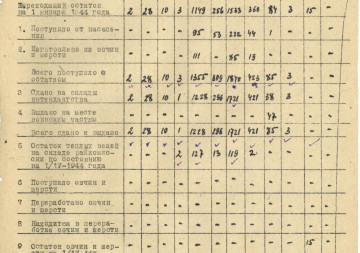 Переходящий остаток
на 1 января 1944 года 2 28 10 3 1149 256 1533 360 84 3 - 15 -
1. Поступило от населе-
ния - - - - 95 53 44 1 - - - -
2. Изготовлено из овчин и
шерсти - - - - 111 - 85 13 - - - - -
Всего поступило с
остатком 2 28 10 3 1355 309 423 85 3 - -
3 Сдано на склады
интендантства 2 28 10 1 1228 296 1721 421 38 3 - - -
4 Выдано на месте
воинским частям - - - - - - - - 47 - - - -
5 Всего сдано и выдано 2 28 10 1 1228 296 1721 421 85 3 - - -
Остаток теплых вещей
на складе
по состоянию
на 1/IX-1944 года - - - 2 127 13 2 - - - - -
6 Поступило овчин и
шерсти - - - - - - - - - - - - -
7 Переработано овчин
и шерсти - - - - - - - - - - - - -
8 Находится в перера-
ботке овчин и шерсти - - - - - - - - - - - - -
9 Остаток овчин и шер-
- - - - - - - - - - - 15 -